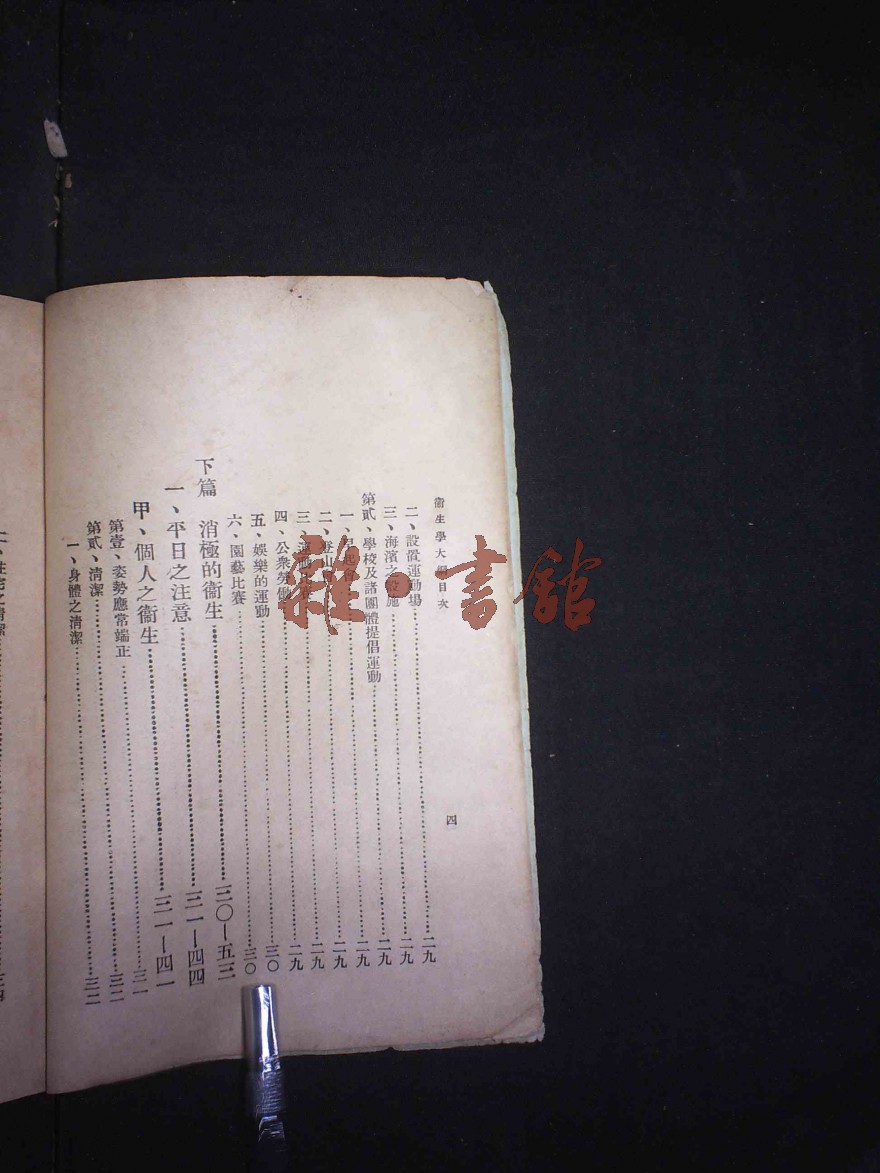 衞生學大綱目次
四
二、設置運動場……二九
三、海濱之設施……二九
第貳、學校及諸團體提倡運動……二九
一、早起會……二九
二、登山……二九
三、運動……二九
四、公衆勞働……三〇
五、娛樂的運動……三〇
六、園藝比賽……三〇
下篇 消極的衞生……三〇—五三
一、平日之注意……三一—四四
甲、個人之衞生……三一—四一
第壹、姿勢應常端正……三一
第貳、清潔……三二
一、身體之清潔……三二
二、住宅之清潔
雜·書館